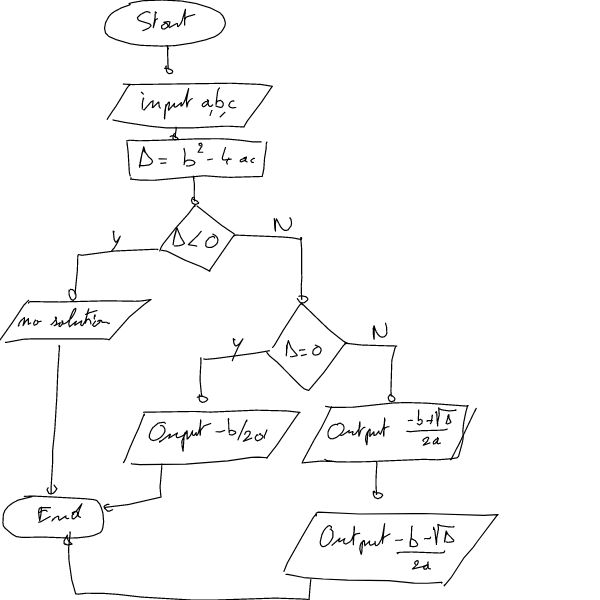 Start
input a,b,c
Δ = b² - 4 ac
Δ < 0
Y
N
no solution
Δ = 0
Y
N
Onput -b/2a
Output (-b+√Δ)/2a
End
Output (-b-√Δ)/2a